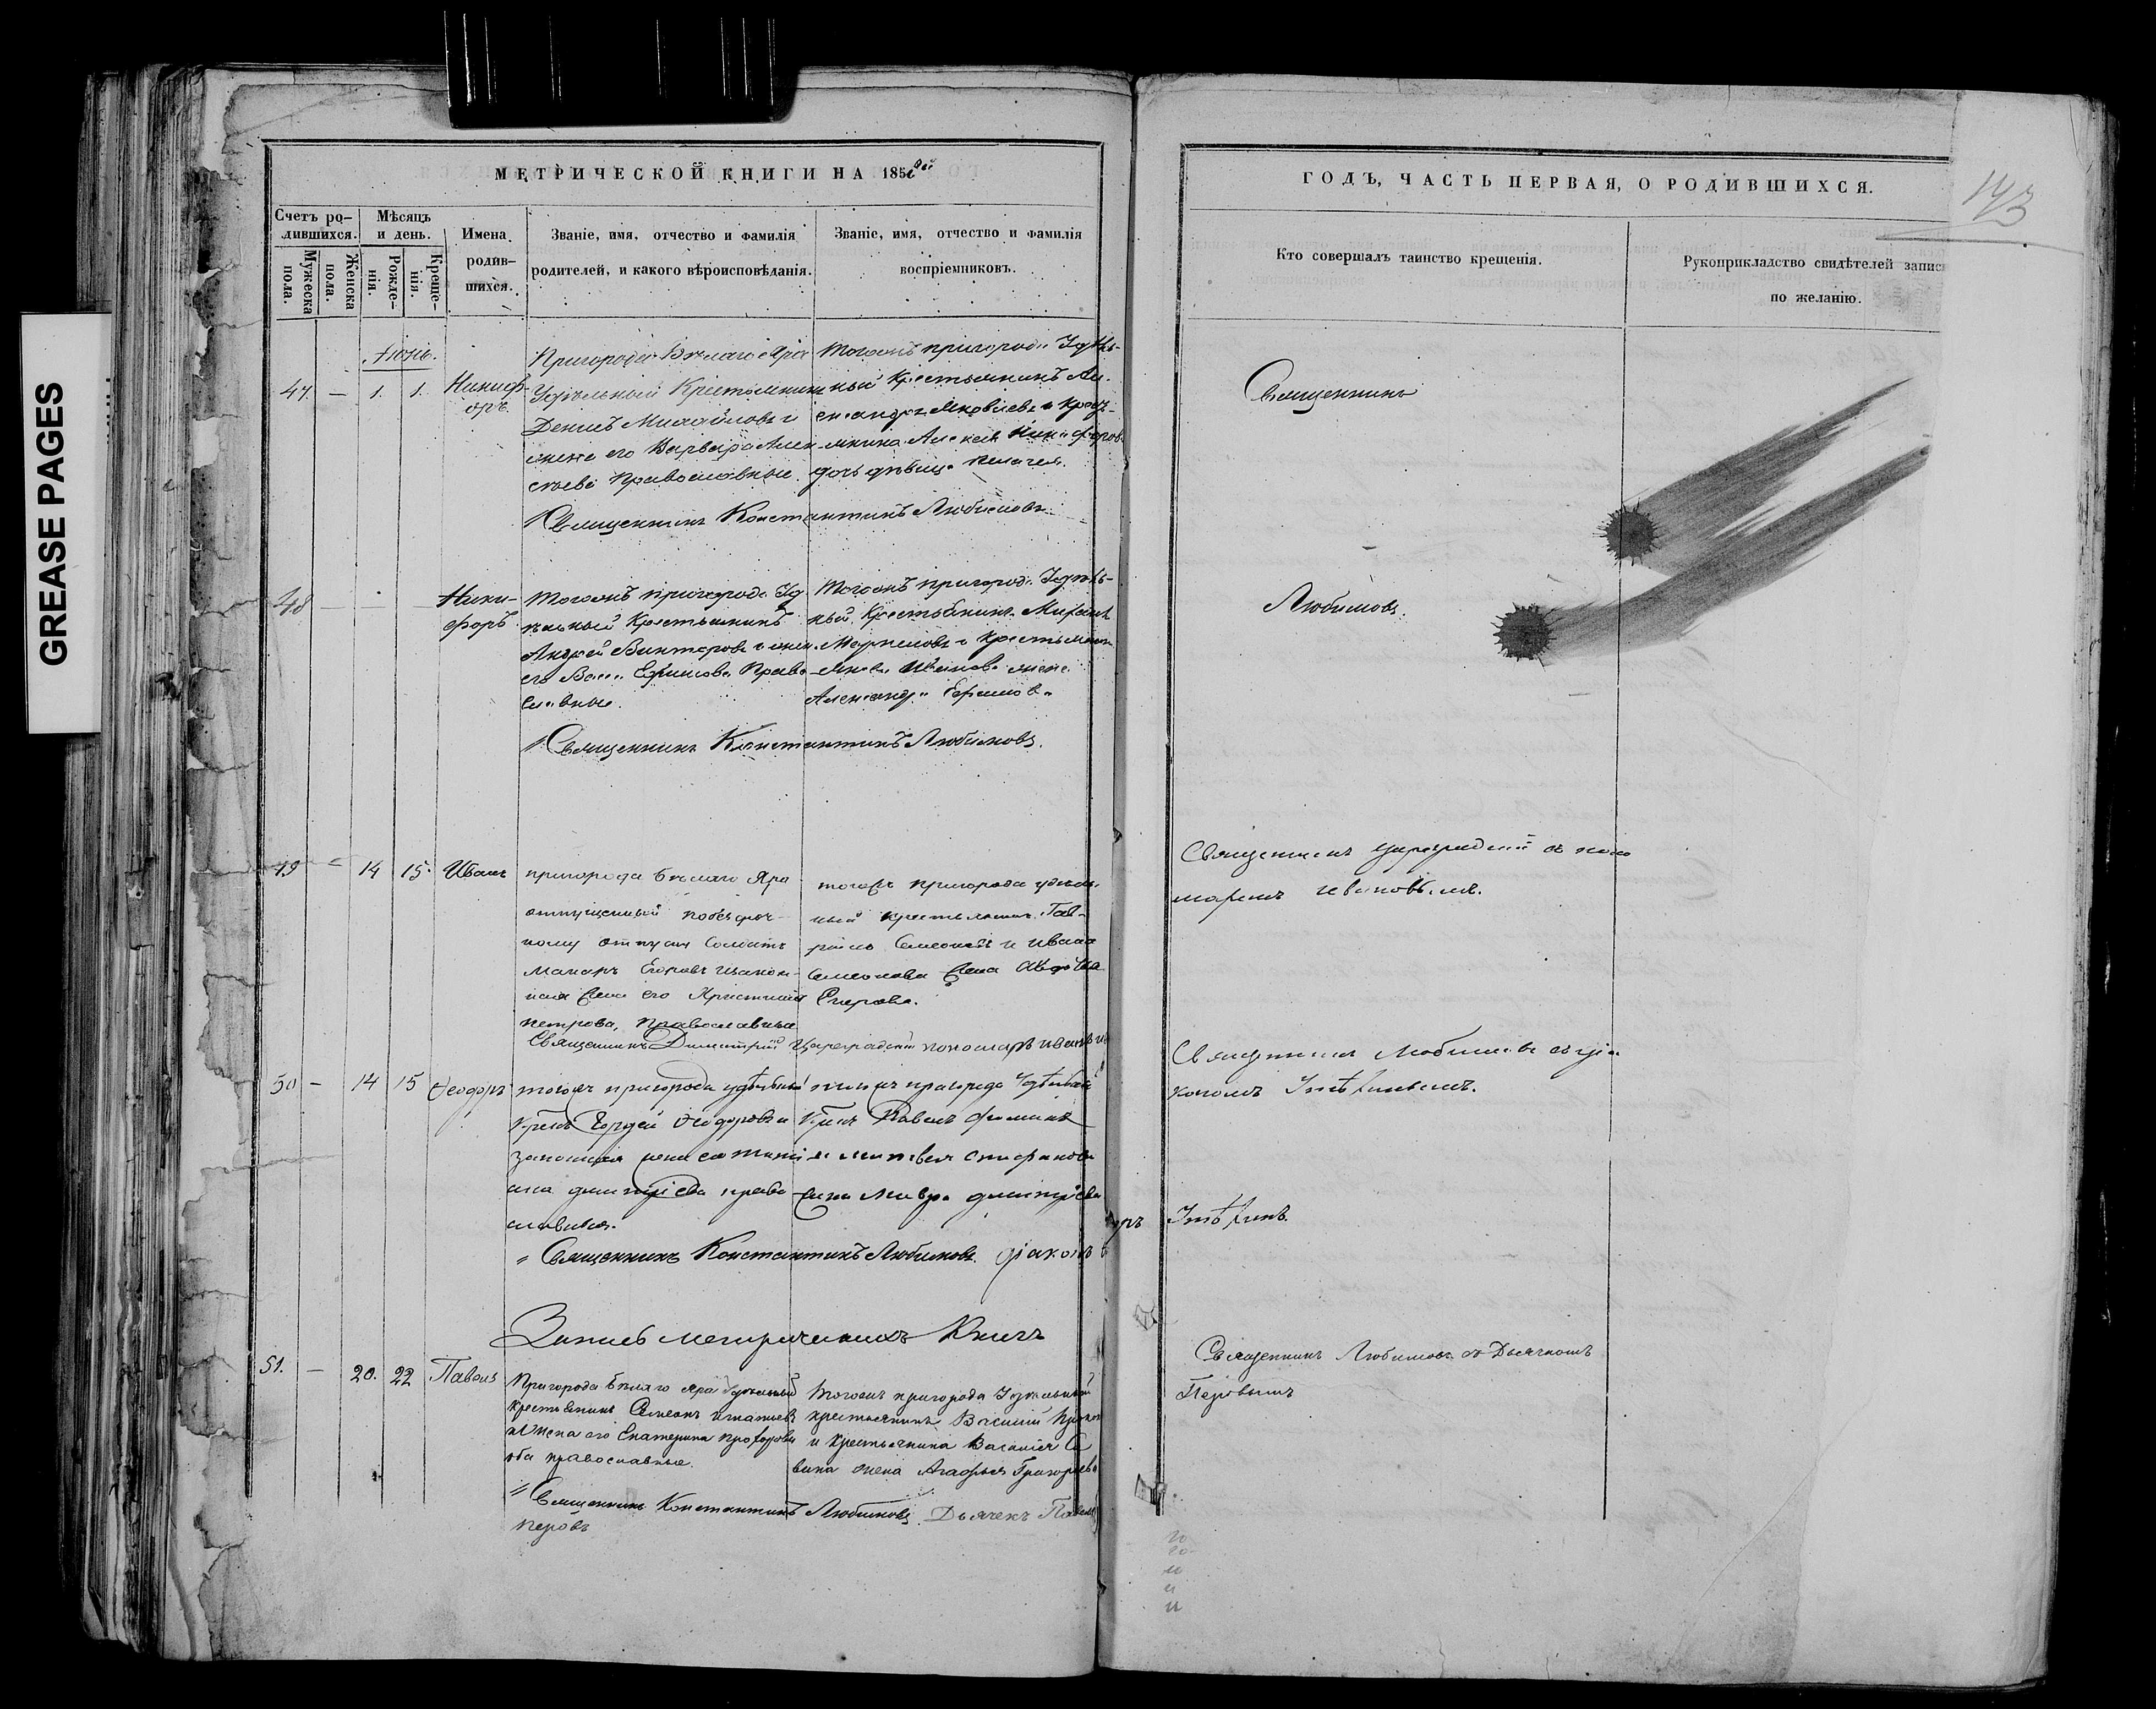 GREASE PAGES
МЕТРИЧЕСКОЙ КНИГИ НА 185
ГОДЪ, ЧАСТЬ ПЕРВАЯ, О РОДИВШИХСЯ.
143
Счетъ ро-
дившихся.
Мужеска
пола.
Женска
пола.
Мѣсяцъ
и день.
Рожде-
нія.
Креще-
нія.
Имена
родив-
шихся.
Званіе, имя, отчество и фамилія
родителей, и какого вѣроисповѣданія.
Званіе, имя, отчество и фамилія
воспріемниковъ.
Кто совершалъ таинство крещенія.
Рукоприкладство свидѣтелей записи
по желанію.
Іюнь.
47. — 1. 1. Никиф-
оръ
Пригорода Бѣлаго Яра
Удѣльный Крестьянинъ
Денисъ Михайловъ и
жена его Варвара Алек-
сѣева Православные.
Тогожъ пригорода Удѣль-
ный Крестьянинъ Ал-
ександръ Яковлевъ и Крест-
янина Алексѣя Никифоров
дочь дѣвица Пелагея.
Священникъ Константинъ Любимовъ.
Священникъ
48 — Ники-
форъ
Тогожъ пригорода Уд
ѣльный Крестьянинъ
Андрей Викторовъ и жена
его Ефимова Право-
славные.
Тогожъ пригорода Удѣль-
ный Крестьянинъ Михаилъ
и Крестьянина
Якова Иванова жена
Александра Ефимова
Священникъ Константинъ Любимовъ.
Любимовъ.
49 — 14 15. Иванъ
пригорода Бѣлаго Яра
отпущенный по безсроч-
ному отпуску Солдатъ
Макаръ Егоровъ и закон-
ная жена его Христина
Петрова, Православные
тогожъ пригорода удѣль-
ный крестьянинъ Гав-
рилъ Семеновъ и Ивана
Семенова жена Авдотья
Егорова.
Священникъ Димитрій Цареградскій пономарь Иванъ
Священникъ Цареградскій съ поно
маремъ Ивановымъ.
50 — 14 15 Ѳеодоръ
тогожъ пригорода удѣльный
Ѳеодоровъ и
законная жена его Тать
яна Димитріева право
славные.
тогожъ пригорода Удѣльный
Павелъ Фоминъ
и Матвея Стифанова
жена Мавра Димитріева
Священникъ Константинъ Любимовъ. діаконъ
Священникъ Любимовъ съ діа
кономъ
Запись метрическихъ Книгъ
51. — 20. 22 Павелъ
Пригорода Бѣлаго Яра Удѣльный
Крестьянинъ Семеонъ Игнатьевъ
и Жена его Екатерина Прохорова
оба православные.
Тогожъ пригорода Удѣльный
крестьянинъ Василій
и Крестьянина Василія Са
вина жена Агафья Григорьева
Священникъ Константинъ Любимовъ. Дьячекъ Павелъ
Перовъ
Священникъ Любимовъ съ Дьячкомъ
Перовымъ